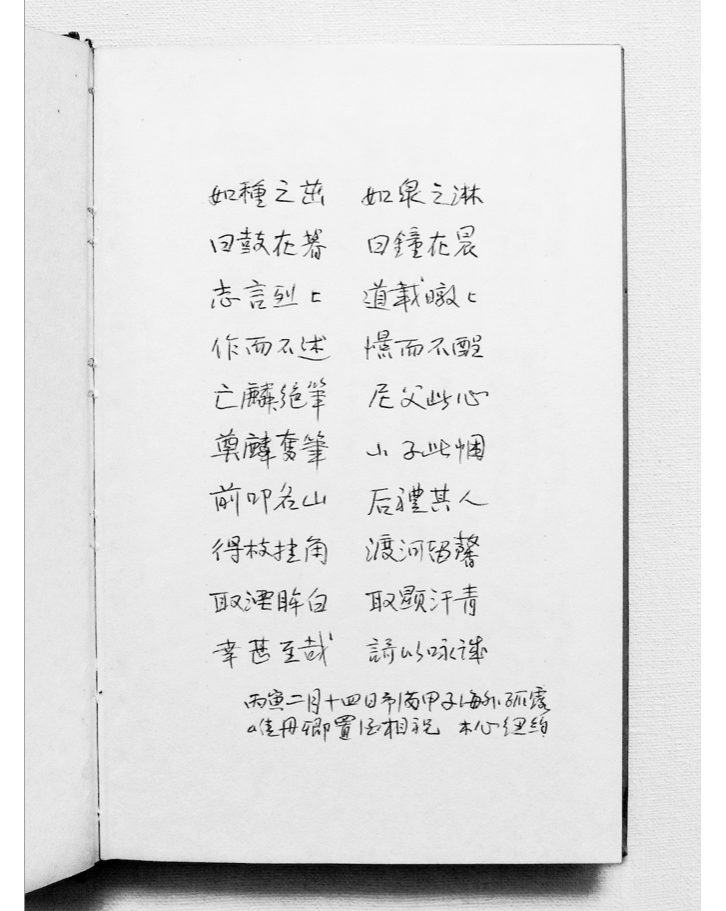 如種之茁 如泉之淋
曰鼓在暮 曰鐘在晨
志言列上 道載暾上
作而不述 憬而不醒
亡麟絕筆 尼父此心
奠麟奮筆 小子此悃
前叩名山 后禮其人
得枝挂角 渡河留馨
取湮眸白 取顯汗青
幸甚至哉 詩以咏誠
丙寅二月十四日市滿甲子海外孤露
唯丹卿置酒相祝 木心紐約